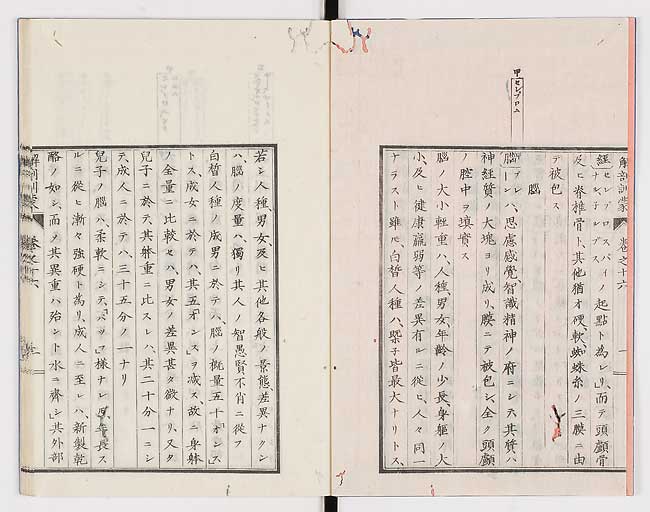 解剖訓蒙 卷之十六 一
甲 セレブロム
經セレブロスパイノ起點ト爲レリ、而テ頭顱骨
及ヒ脊椎骨ト、其他猶オ硬、軟、蜘蛛糸ノ三膜ニ由
テ被包ス
腦
腦ハ、思慮感覺、智識精神ノ府ニシテ其質ハ
神經質ノ大塊ヨリ成リ、膜ニテ被包シ、全ク頭顱
ノ腔中ヲ填實ス
腦ノ大小輕重ハ、人種、男女、年齢ノ少長、身軀ノ大
小、及ヒ健康羸弱等ノ差異有ルニ從ヒ、人々同一
ナラスト雖モ、白晳人種ハ、槩子皆最大ナリトス、
若シ人種、男女、及ヒ其他各般ノ景態、差異ナクン
ハ、腦ノ度量ハ、獨リ其人ノ智愚賢不肖ニ從フ
白晳人種ノ成男ニ於テハ、腦ノ概量五十「オンス」
トス、成女ニ於テハ、其五「オンス」ヲ減ス、故ニ身體
ノ全量ニ比較セハ、男女ノ差異甚タ微ナリ、又タ
兒子ニ於テ其體重ニ比スレハ、其二十分一ニシ
テ、成人ニ於テハ、三十五分ノ一ナリ
兒子ノ腦ハ、柔軟ニシテ、様ナレ𪜈、年長ス
ルニ從ヒ漸々強硬ト爲リ、成人ニ至レハ、新製乾
酪ノ如シ、而メ其異重ハ殆ント水ニ齊シ、其外部
解剖訓蒙 卷之十六